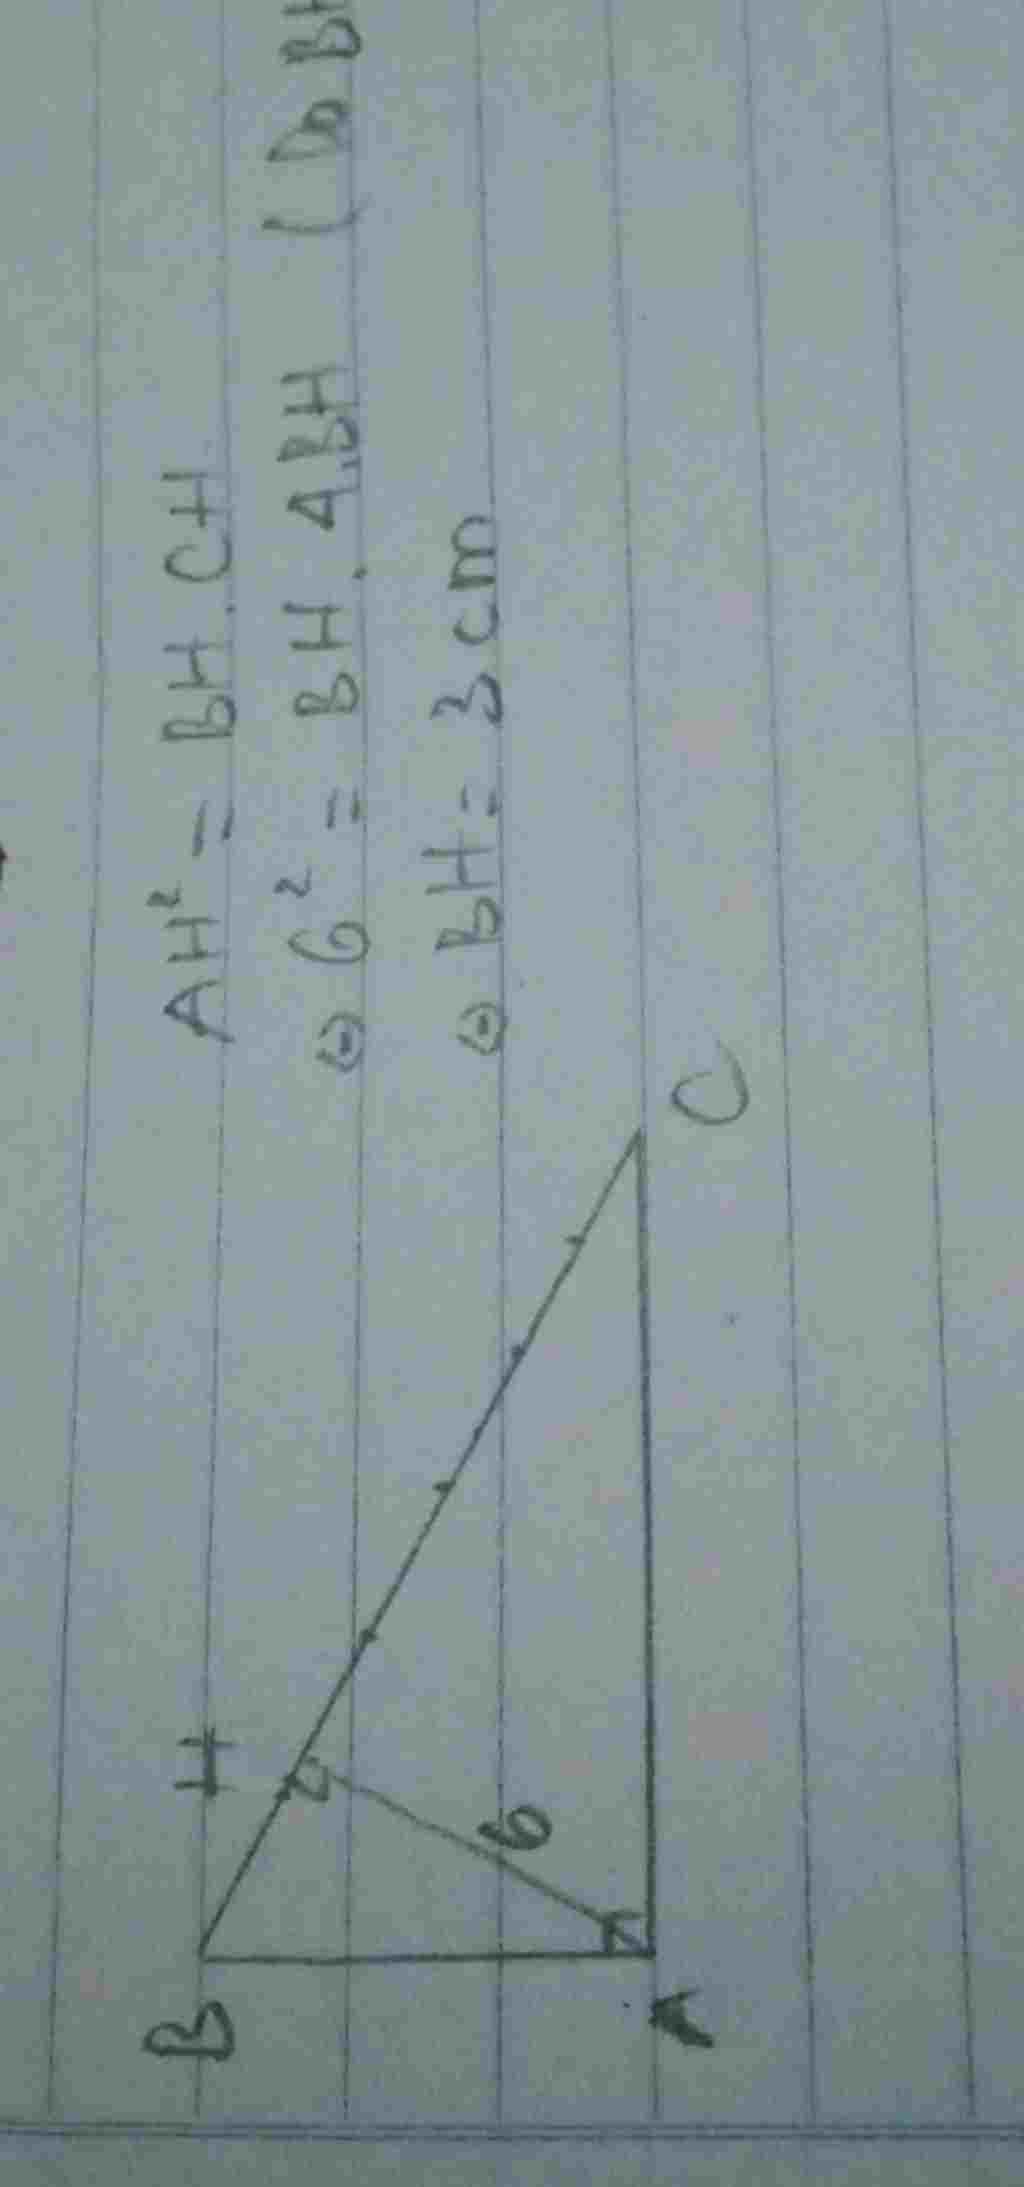 AH² = BH.CH
⇔ 6² = BH.4.BH (Do BH
⇔ BH = 3 cm
B
H
6
A
C